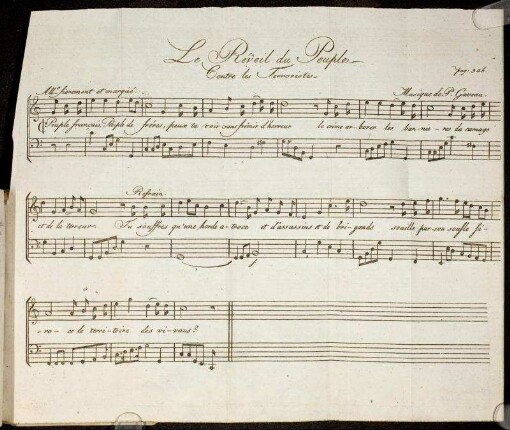 Le Réveil du Peuple
Contre les Terroristes
pag. 346
All.° fierement et marqué
Musique de P. Gaveau
Peuple français, Peuple de frères, peux tu voir sans frémir d'horreur le crime arborer les bannie-res du carnage
et de la terreur.
Refrain
Tu souffres qu'une horde a-troce et d'assassins et de bri-gands souille par son souffle fé-
-ro-ce le terri-toire des vi-vans?